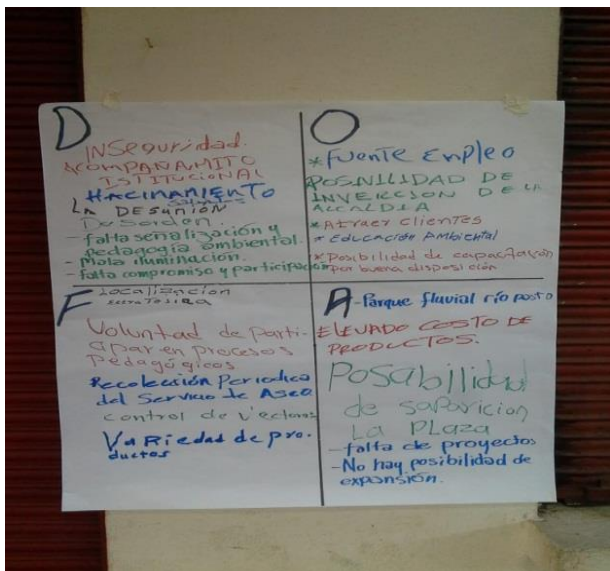 D
INSeguridad.
ACOMPAÑAMITO
ISTITUCIONAL
HACINAMIENTO
LA DESUNIÓN
Desorden.
- falta señalización y
pedagogía ambiental.
- Mala iluminacion.
- falta compromiso y participación
O
* fuente Enpleo
POSNILIDAD DE
INVERCION DE LA
ALCALDIA
* Atraer clientes
* Educación Ambiental
* Posibilidad de capacitación
por buena disposición
F
Localización
Voluntad de Parti-
cipar en procesos
Pedagógicos
Recolección Periodica
del Servicio de Aseo
control de Vectores
Variedad de pro-
ductos
A
- Parque fluvial río pasto
ELEVADO COSTO DE
PRODUCTOS.
Posabilidad
de saparicion
La PLaza
- falta de proyectos
- No hay posibilidad de
expansión.